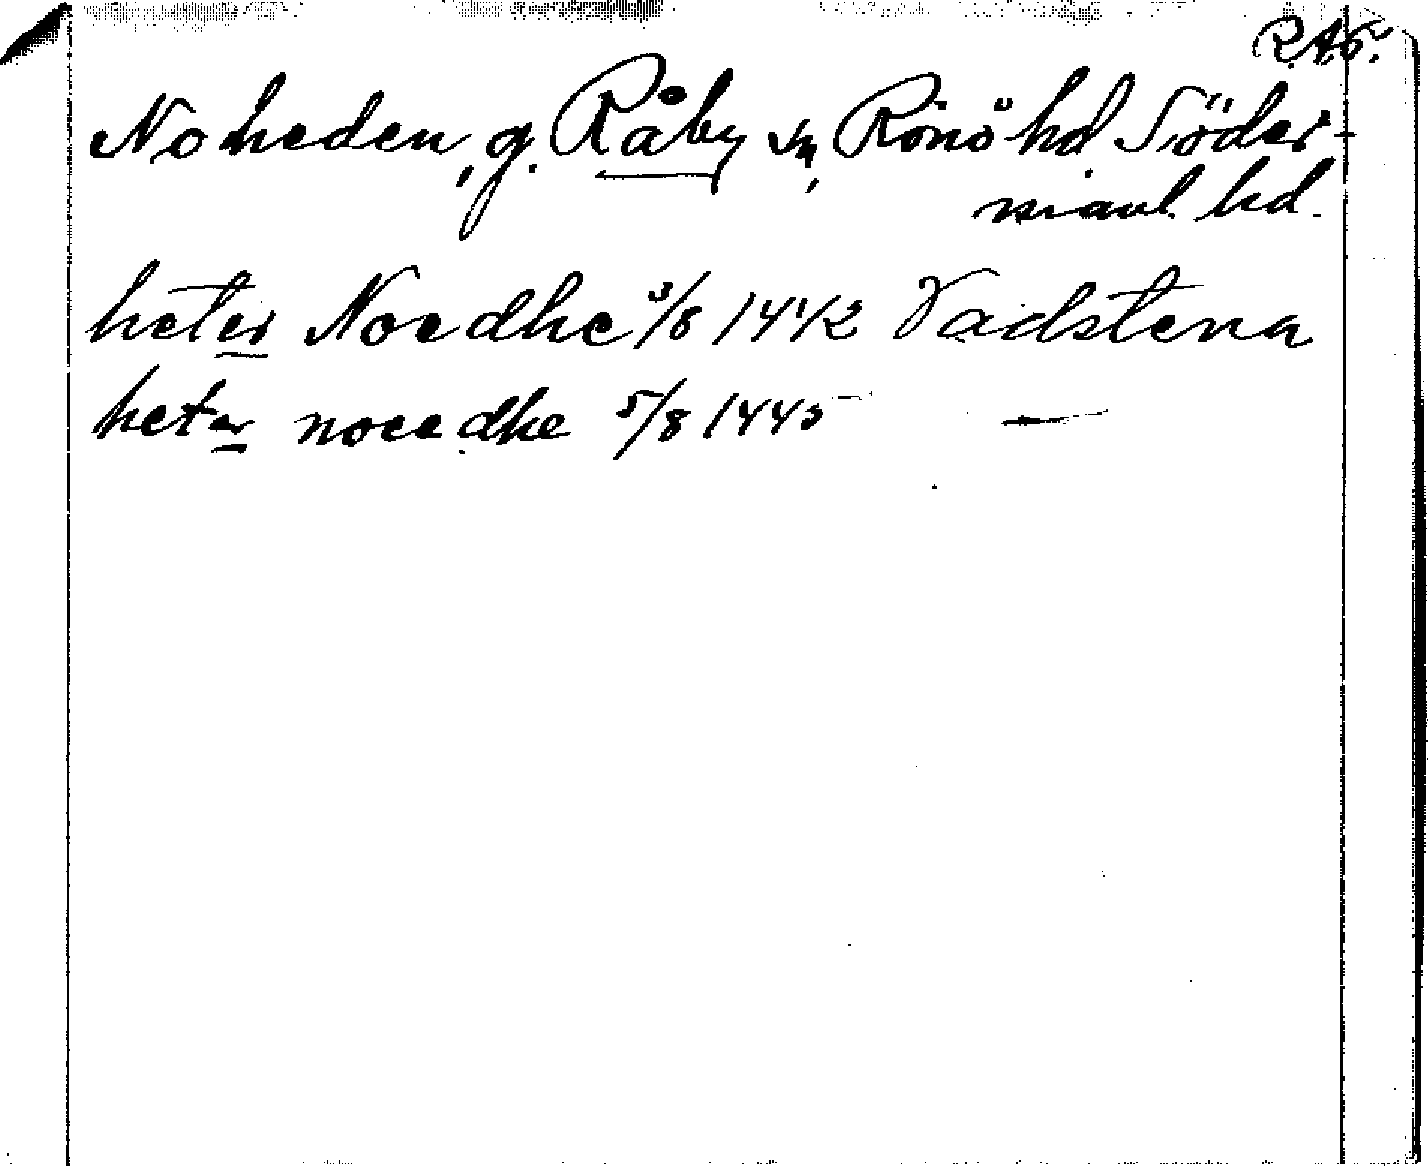 R.A.S.
Noheden, g. Råby sn, Rönö hd Söder-
manl. hd.
heter Noedhe 3/8 1442 Vadstena
heter noeedhe 5/8 1445 —